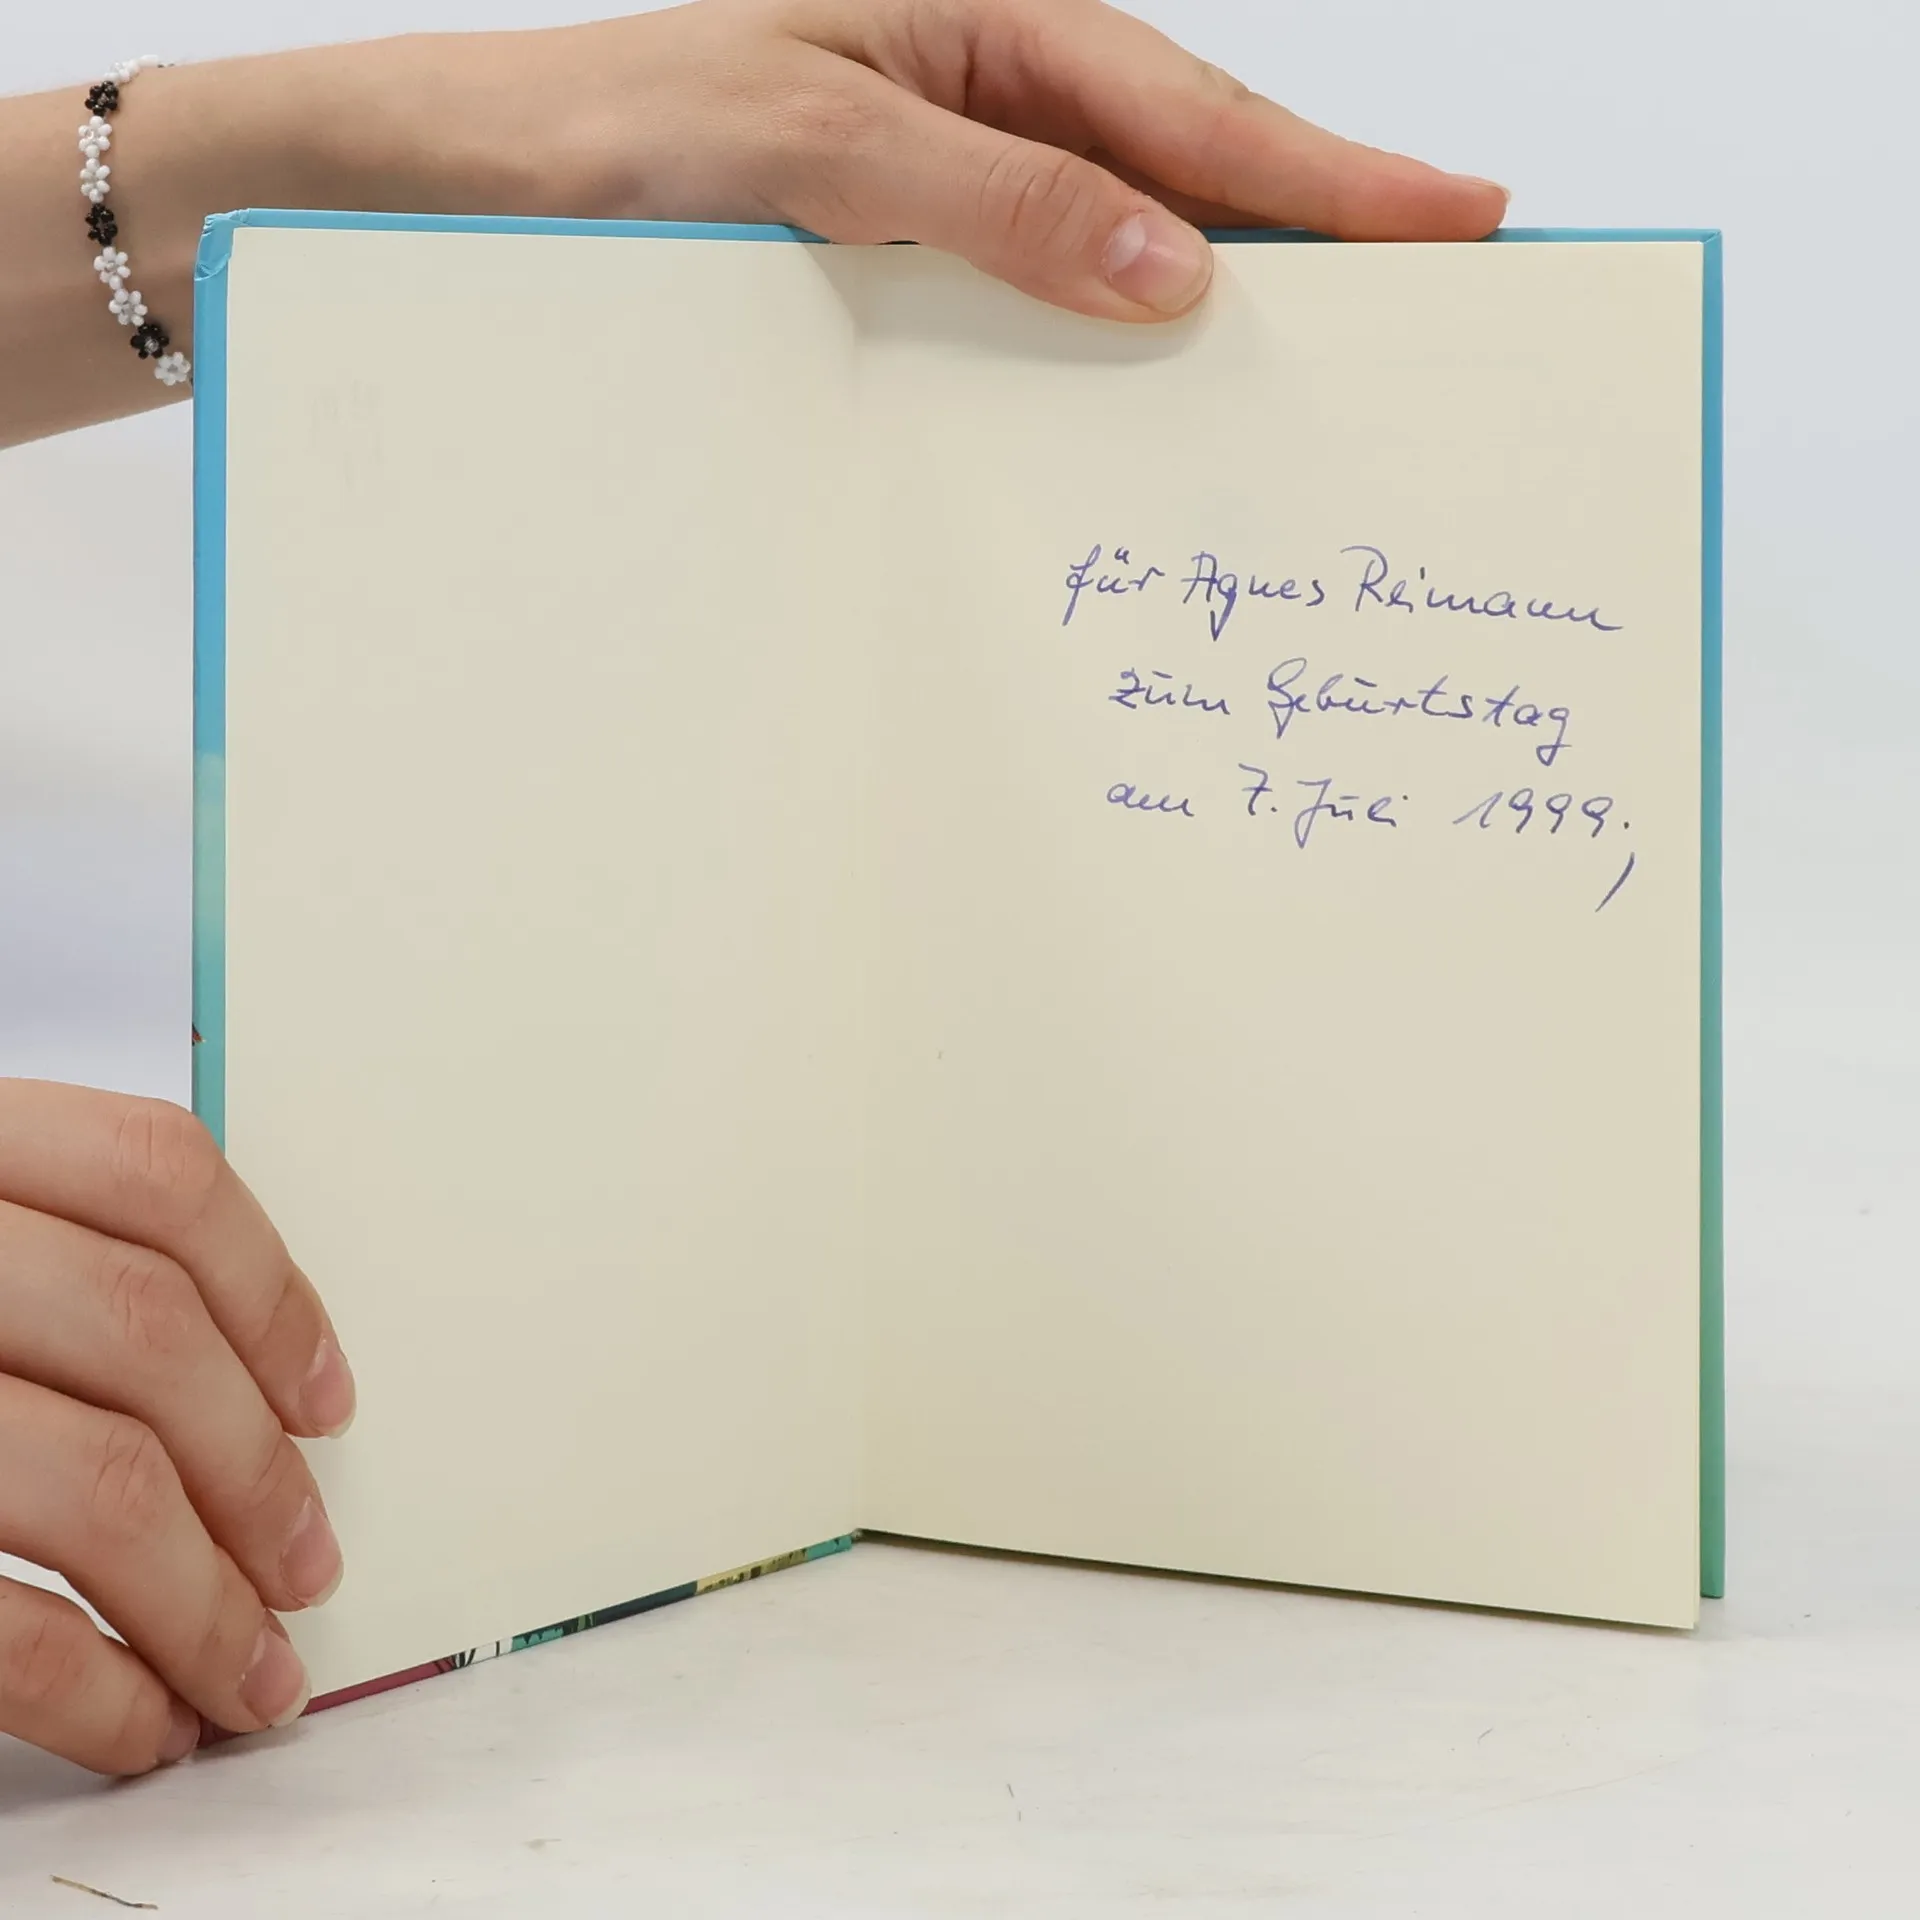 für Agnes Reimann
zum Geburtstag
am 7. Juli 1999.